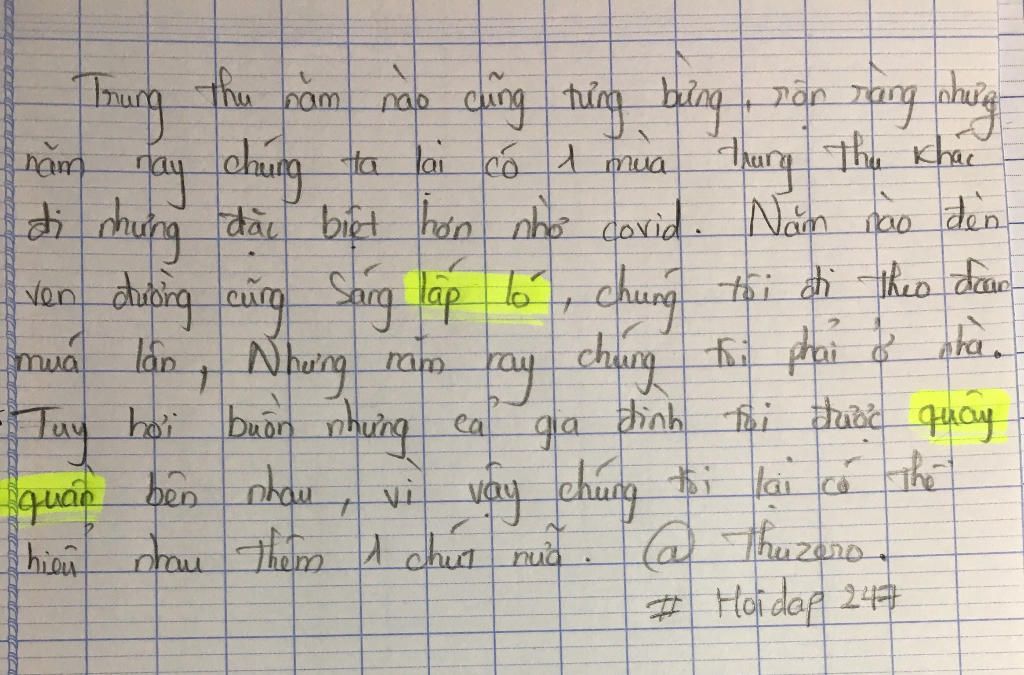 Trung thu năm nào cũng tưng bừng, rộn ràng nhưng
năm nay chúng ta lại có 1 mùa trung thu khác
đi nhưng đặc biệt hơn nhờ covid. Năm nào đèn
ven đường cũng sáng lấp ló, chúng tôi đi theo đoàn
múa lân, Nhưng năm nay chúng tôi phải ở nhà.
Tuy hơi buồn nhưng cả gia đình tôi được quây
quần bên nhau, vì vậy chúng tôi lại có thể
hiểu nhau thêm 1 chút nữa. @ Thuzero.
# Hoidap 247